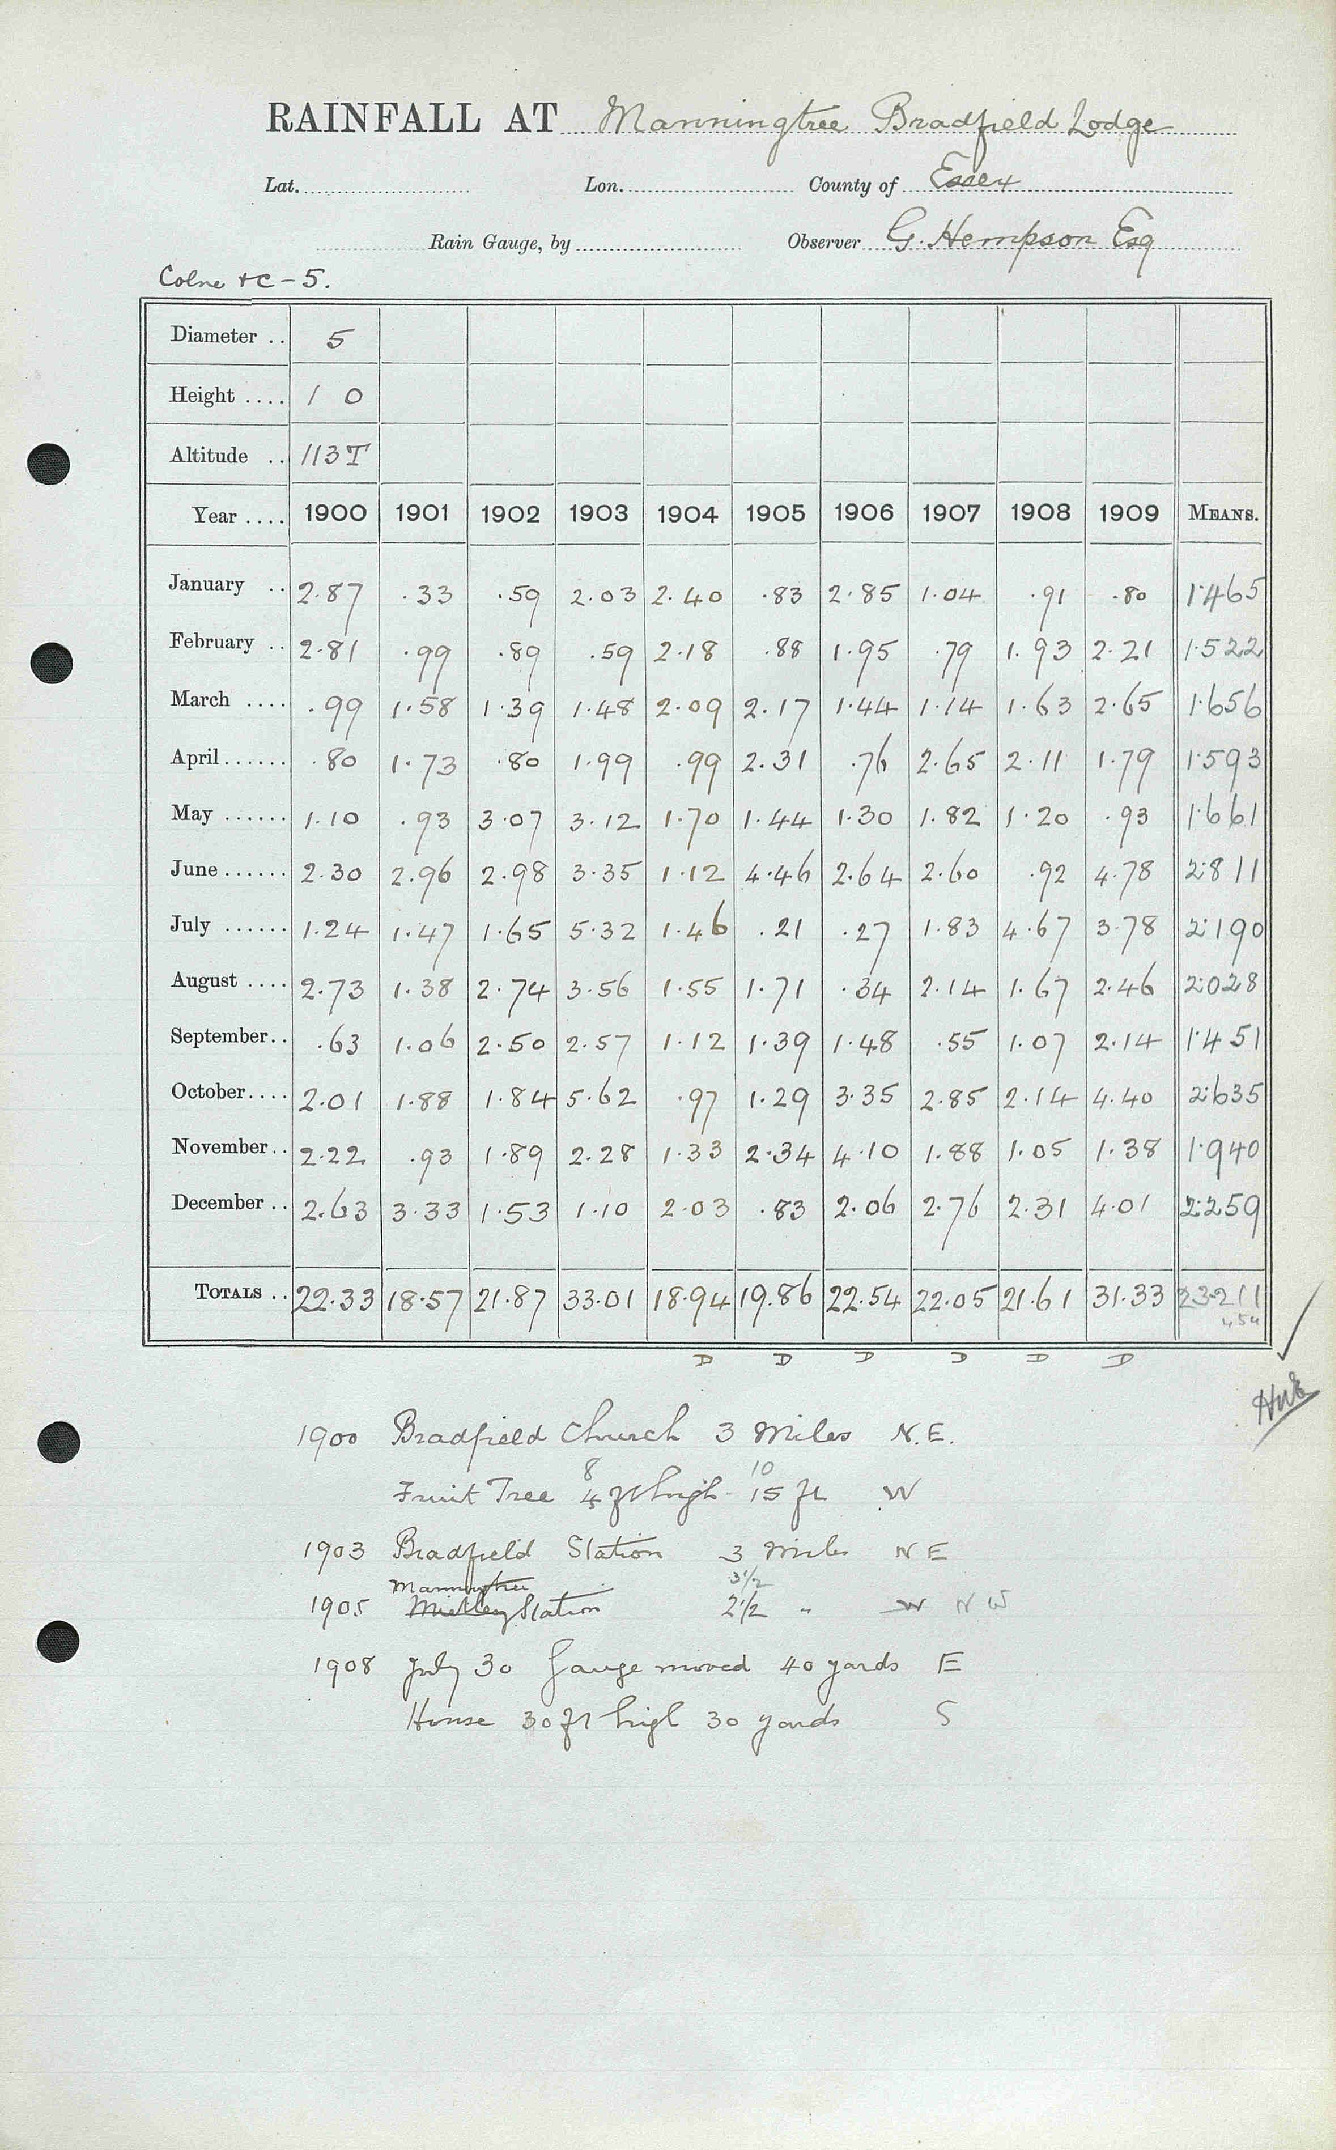 RAINFALL AT Manningtree Bradfield Lodge
Lat. Lon. County of Essex
Rain Gauge, by Observer G. Hempson Esq
Colne &c - 5.
Diameter .. 5
Height .... 1 0
Altitude .. 113T
Year .... 1900 1901 1902 1903 1904 1905 1906 1907 1908 1909 MEANS.
January .. 2.87 .33 .59 2.03 2.40 .83 2.85 1.04 .91 .80 1.465
February .. 2.81 .99 .89 .59 2.18 .88 1.95 .79 1.93 2.21 1.522
March .... .99 1.58 1.39 1.48 2.09 2.17 1.44 1.14 1.63 2.65 1.656
April ...... .80 1.73 .80 1.99 .99 2.31 .76 2.65 2.11 1.79 1.593
May ...... 1.10 .93 3.07 3.12 1.70 1.44 1.30 1.82 1.20 .93 1.661
June ...... 2.30 2.96 2.98 3.35 1.12 4.46 2.64 2.60 .92 4.78 2.811
July ...... 1.24 1.47 1.65 5.32 1.46 .21 .27 1.83 4.67 3.78 2.190
August .... 2.73 1.38 2.74 3.56 1.55 1.71 .34 2.14 1.67 2.46 2.028
September.. .63 1.06 2.50 2.57 1.12 1.39 1.48 .55 1.07 2.14 1.451
October.... 2.01 1.88 1.84 5.62 .97 1.29 3.35 2.85 2.14 4.40 2.635
November.. 2.22 .93 1.89 2.28 1.33 2.34 4.10 1.88 1.05 1.38 1.940
December .. 2.63 3.33 1.53 1.10 2.03 .83 2.06 2.76 2.31 4.01 2.259
TOTALS .. 22.33 18.57 21.87 33.01 18.94 19.86 22.54 22.05 21.61 31.33 23.211
D D D D D D
1900 Bradfield Church 3 Miles N.E.
8 10
Fruit Tree 4 ft high 15 ft W
1903 Bradfield Station 3 Miles N E
Manningtree 3 1/2
1905 Mistley Station 2 1/2 " W N W
1908 July 30 Gauge moved 40 yards E
House 30 ft high 30 yards S